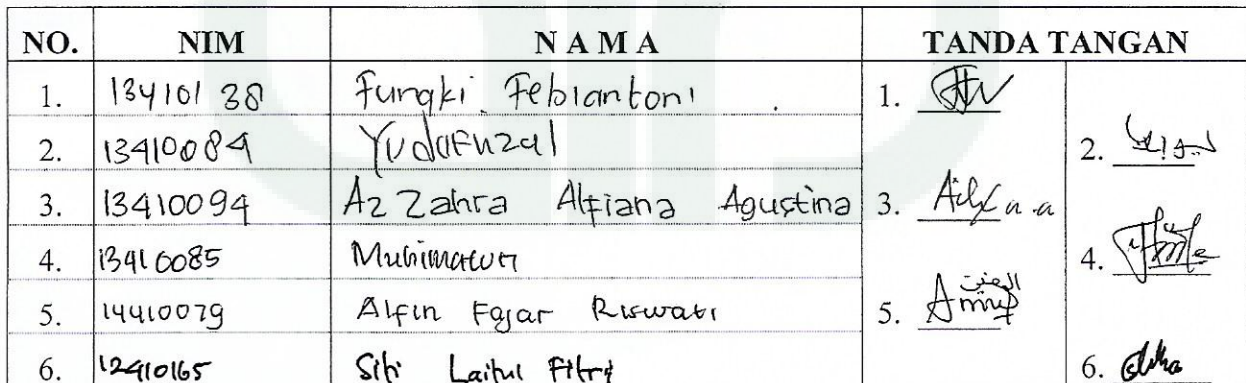 NO. NIM N A M A TANDA TANGAN
1. 13410138 Fungki Febiantoni 1.
2. 13410084 Yudafnzal 2.
3. 13410094 Az Zahra Alfiana Agustina 3.
4. 13410085 Muhimatun 4.
5. 14410079 Alfin Fajar Riswati 5.
6. 12410165 Siti Lailul Fitri 6.